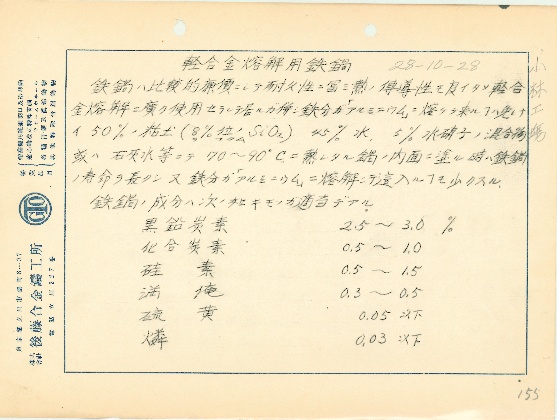 軽合金熔解用鉄鍋
28-10-28
小林工場
鉄鍋ハ比較的廉價ニシテ耐火性ニ富ミ熱ノ傳導性モ良イノデ軽合
金熔解ニ廣ク使用セラレテ居ルガ稀ニ鉄分ガアルミニウムニ熔ケテ来ル
50% 粘土 (8% SiO2) 45% 水、5% 水硝子ノ混合物
或ハ石灰水等ニテ 70~90°C ニ熱シタル鍋ノ内面ニ塗ル時ハ鉄鍋
ノ寿命ヲ長クシ又鉄分ガアルミニウムニ熔解シテ這入ル事モ少クスル.
鉄鍋ノ成分ハ次ノ如キモノガ適当デアル.
黒鉛炭素 2.5 ~ 3.0 %
化合炭素 0.5 ~ 1.0
硅素 0.5 ~ 1.5
満俺 0.3 ~ 0.5
硫黄 0.05 以下
燐 0.03 以下
株式会社 後藤合金鑄工所
155